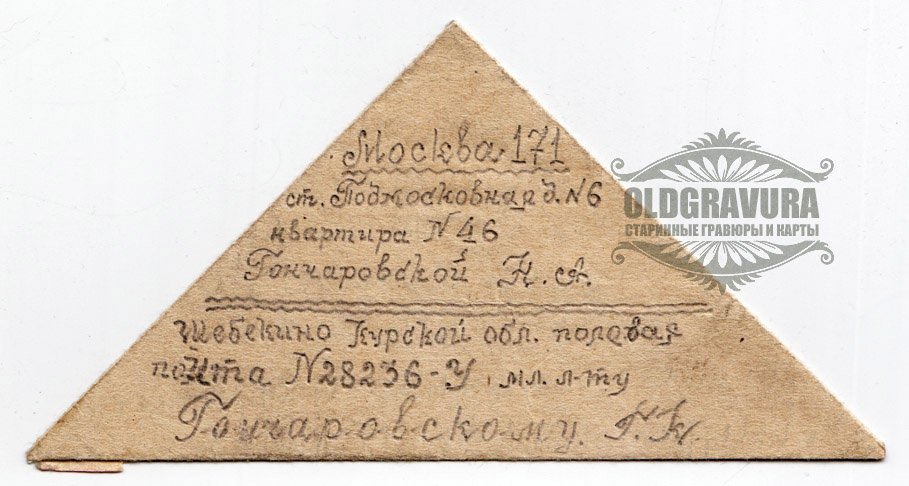 Москва 171
ст. Подмосковная д. N 6
квартира N 46
Гончаровской Н. А.
Шебекино Курской обл. полевая
почта N28236-У мл. л-ту
Гончаровскому Г. К.
OLDGRAVURA
СТАРИННЫЕ ГРАВЮРЫ И КАРТЫ